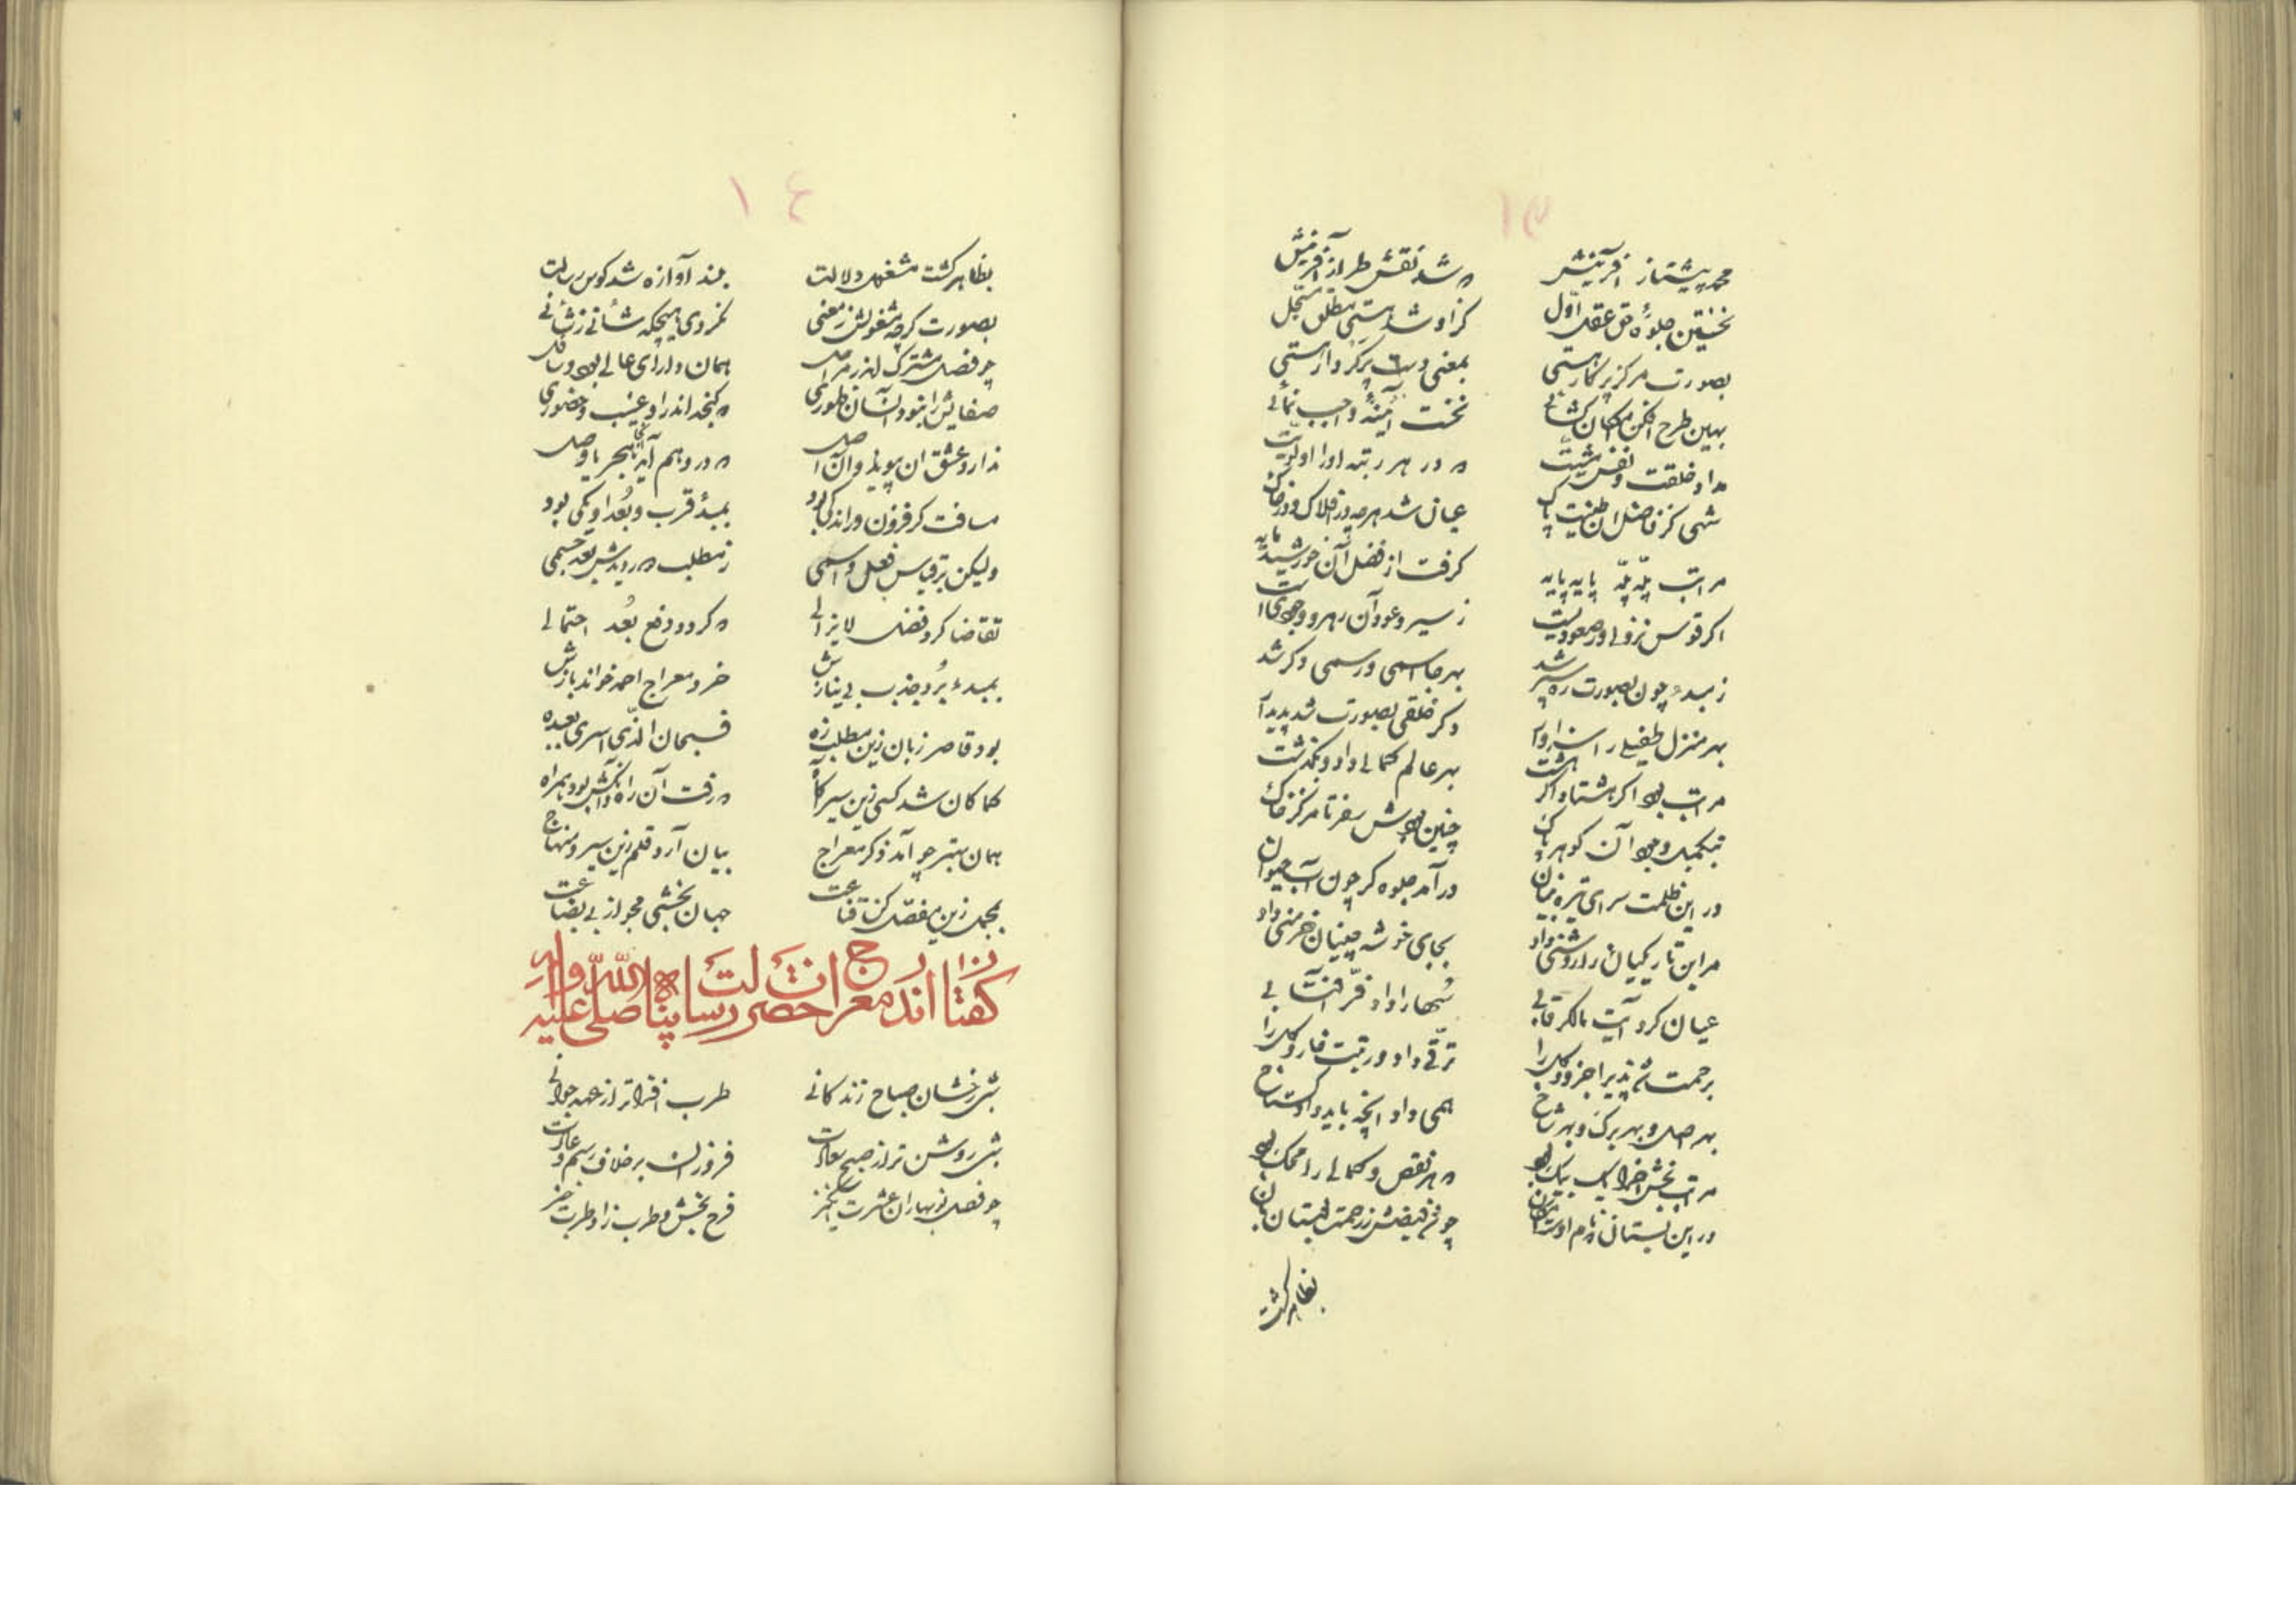 ۱۳
محمد پیشتاز آفرینش که شد نقش طراز آفرینش
نخستین جلوهٔ حق عقل اول کز او شد هستی مطلق
بصورت مرکز پرگار هستی بمعنی دست پرگردار هستی
بهین طرح افکن امکان گشائی نخست آئینهٔ واجب نمائی
خلقت و نفس مشیت که در هر رتبه او را اولیت
شهی کز فاضل آن طینت پاک عیان شد هرچه در افلاک و در خاک
مراتب پلّه پلّه پایه پایه گرفت از فضل آن خورشید مایه
اگر قوس نزولی ور صعودیست ز سیر و عود آن رهرو وجودی است
ز مبدء چون بصورت ره سپر شد بهر جا اسمی و رسمی دگر شد
بهر منزل طفیلی را دگر خلقی بصورت شد پدیدار
مراتب بود اگر هشتاد اگر هشت بهر عالم کمالی داد و بگذشت
بتکمیل وجود آن گوهر پاک چنین بودش سفر تا مرکز خاک
در این ظلمت سرای تیره بنیان درآمد جلوه گر چون آب حیوان
مر این تاریکیان را روشنی داد بجای خوشه چینان خرمنی داد
عیان کرد آیت مالک رقابی سُها را داد فرّ آفتابی
برحمت شد پذیرا جزو و کل را ترقّی داد در رتبت خار و گل را
بهر اصل و بهر برگ و بهر شاخ همی داد آنچه باید داد گستاخ
مراتب بخش اجزا یک بیک بود که هر نقص و کمالی را محک بود
در این بستان چو فیضش ز رحمت
بظاهر گشت
۱٤
بظاهر گشت مشغول دلالت بلند آوازه شد کوس رسالت
بصورت گرچه مشغولش ز معنی نکردی هیچگه شأنی ز شأنی
چو فصل مشترک اندر مراحل همان دارای عالی بود و سافل
صفایش را نبود آنسان ظهوری که گنجد اندر او غیب و حضوری
ندارد عشق که در وهم آید
مسافت گر فزون ور اندکی بود بمبدء قرب و بُعد او یکی بود
ولیکن بر قیاس فعل و اسمی ز مطلب بعد جسمی
تقاضا کرد فضل لایزالی که گردد دفع بُعد احتمالی
بمبدء بُرد جذب بی نیازش خرد معراج احمد خواند بازش
بود قاصر زبان زین مطلب زه فسبحان الذّی اسری بعبده
کما کان شد کسی زین سیر آگاه که رفت آن راه و آنکش بود همراه
همان بهتر چو آمد ذکر معراج بیان آرد قلم زین سیر و منهاج
بمجمل زین مفصّل کن قناعت جهان بخشی مجو از بی بضاعت
گفتار اندر معراج حضرت رسالت پناه صلی الله علیه و اله
شبی رخشان صباح زندگانی طرب افزاتر از عهد جوانی
شبی روشن تر از صبح سعادت فروزان بر خلاف رسم و عادت
چو فصل نوبهاران عشرت انگیز فرح بخش و طرب زا و طرب خیز